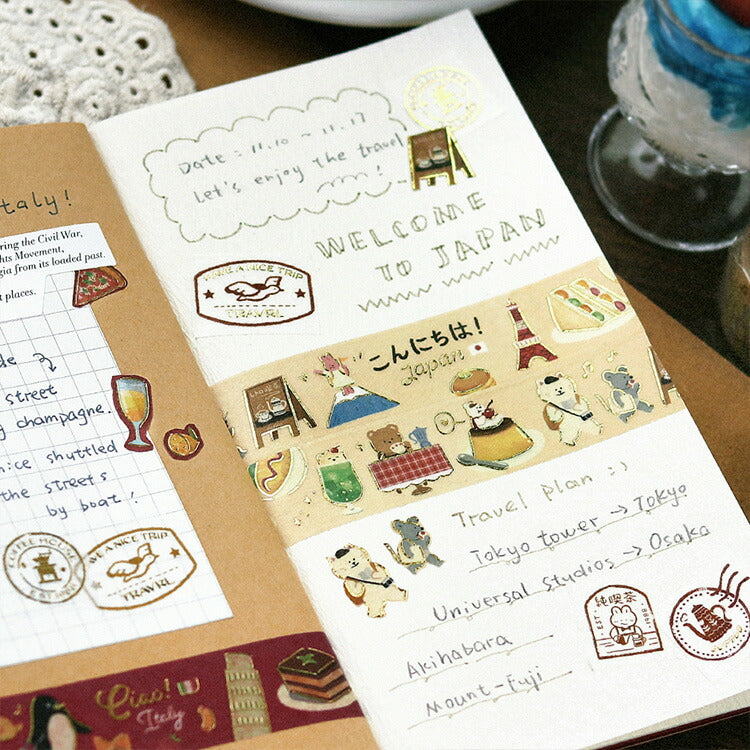 taly!
ring the Civil War,
ghts Movement,
gia from its loaded past.
t places.
de
street
champagne.
nice shuttled
the streets
by boat!
COFFEE HOUSE
WE A NICE TRIP
TRAVRL
Ciao!
Italy
Date: 11.10 ~ 11.17
Let's enjoy the travel
!
WELCOME
TO JAPAN
A NICE TRIP
TRAVRL
こんにちは!
Japan
Travel plan :)
Tokyo tower → Tokyo
Universal Studios → Osaka
Akihabara
Mount-Fuji
純喫茶
EST